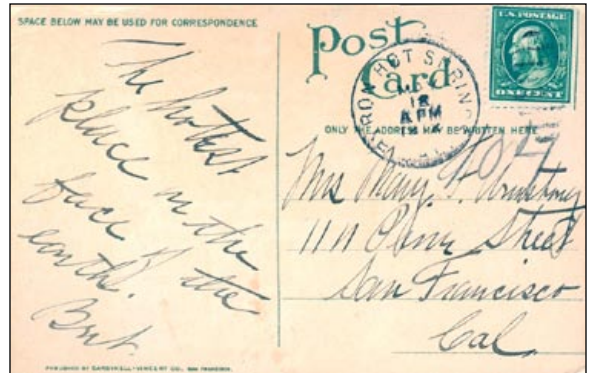 SPACE BELOW MAY BE USED FOR CORRESPONDENCE
The hottest
place on the
face of the
earth.
Bert.
PUBLISHED BY CARDINELL-VINCENT CO., SAN FRANCISCO.
Post
Card
U.S. POSTAGE
ONE CENT
HOT SPRIN
18
PM
ONLY THE ADDRESS MAY BE WRITTEN HERE
Mrs Mary Armstrong
Street
San Francisco
Cal.